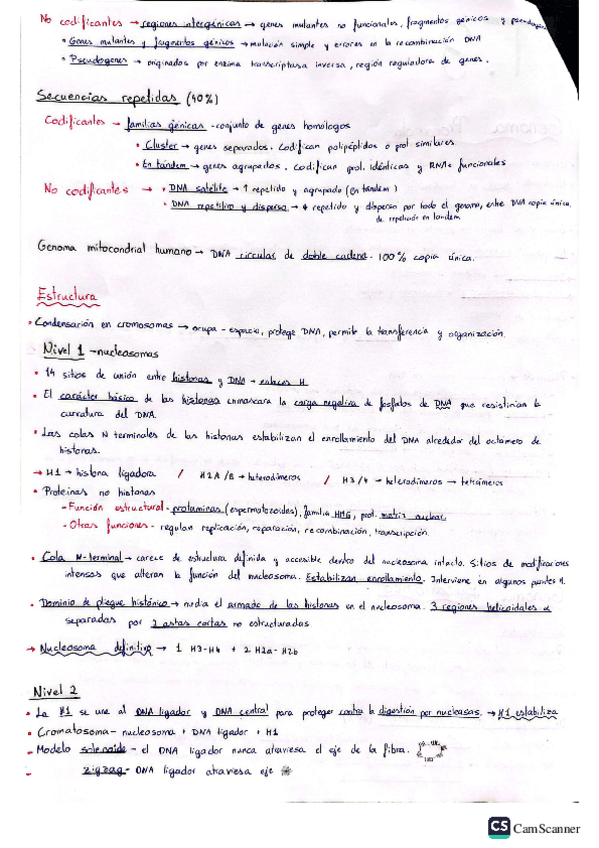 No codificantes → regiones intergénicas → genes mutantes no funcionales, fragmentos génicos y pseudogenes
• Genes mutantes y fragmentos génicos → mutación simple y errores en la recombinación DNA
• Pseudogenes → originados por enzima transcriptasa inversa, región reguladora de genes.
Secuencias repetidas (40%)
Codificantes → familias génicas - conjunto de genes homólogos
• Cluster → genes separados. Codifican polipéptidos o prot similares
• En tándem → genes agrupados. Codifican prot. idénticas y RNAs funcionales
No codificantes → • DNA satélite → ↑ repetido y agrupado (en tándem)
• DNA repetitivo y disperso → ↓ repetido y disperso por todo el genoma, entre DNA copia única.
de repetición en tandem
Genoma mitocondrial humano → DNA circular de doble cadena. 100% copia única.
Estructura
• Condensación en cromosomas → ocupa - espacio, protege DNA, permite la transferencia y organización.
Nivel 1 - nucleosomas
• 14 sitios de unión entre histonas y DNA → enlaces H
• El carácter básico de las histonas enmascara la carga negativa de fosfatos de DNA que resistirían la
curvatura del DNA.
• Las colas N terminales de las histonas estabilizan el enrollamiento del DNA alrededor del octamero de
histonas.
→ H1 → histona ligadora / H2A/B → heterodímeros / H3/4 → heterodimeros → tetrámeros
• Proteínas no histonas
- Función estructural - protaminas (espermatozoides), familia HMG, prot. matriz nuclear
- Otras funciones - regulan replicación, reparación, recombinación, transcripción.
• Cola N-terminal → carece de estructura definida y accesible dentro del nucleosoma intacto. Sitios de modificaciones
intensas que alteran la función del nucleosoma. Estabilizan enrollamiento. Interviene en algunos puentes H.
• Dominio de pliegue histónico → media el armado de las histonas en el nucleosoma. 3 regiones helicoidales α
separadas por 2 astas cortas no estructuradas
→ Nucleosoma definitivo → 1 H3-H4 + 2 H2a-H2b
Nivel 2
• La H1 se une al DNA ligador y DNA central para proteger contra la digestión por nucleasas. → H1 estabiliza
• Cromatosoma - nucleosoma + DNA ligador + H1
- Modelo solenoide - el DNA ligador nunca atraviesa el eje de la fibra.
- zigzag - DNA ligador atraviesa eje
CS CamScanner